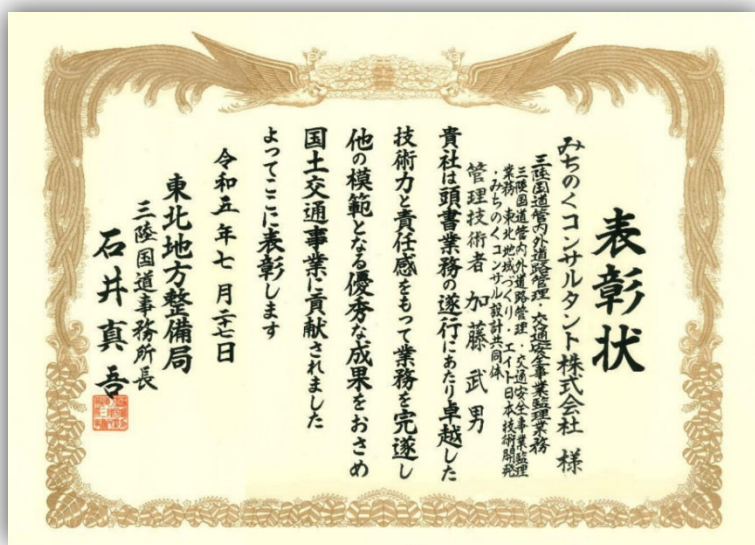 表彰状
みちのくコンサルタント株式会社 様
三陸国道管内外道路管理・交通安全事業監理業務
三陸国道管内外道路管理・交通安全事業監理
業務 東北地域づくり・エイト日本技術開発
・みちのくコンサル設計共同体
管理技術者 加藤武男
貴社は頭書業務の遂行にあたり卓越した
技術力と責任感をもって業務を完遂し
他の模範となる優秀な成果をおさめ
国土交通事業に貢献されました
よってここに表彰します
令和五年七月二十七日
東北地方整備局
三陸国道事務所長
石井真吾